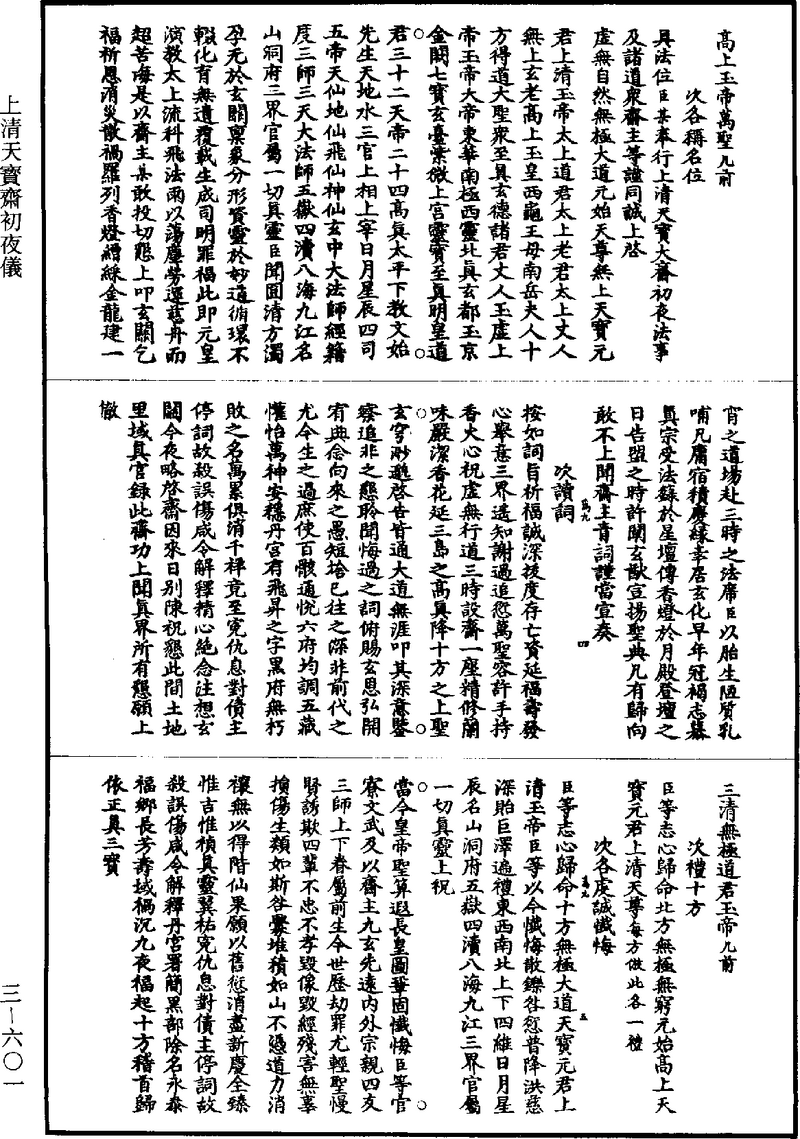 上清天寶齋初夜儀
三—六〇一
高上玉帝萬聖几前
次各稱名位
具法位臣某奉行上清天寶大齋初夜法事
及諸道衆齋主等謹同誠上啓
虛無自然無極大道元始天尊無上天寶元
君上清玉帝太上道君太上老君太上丈人
無上玄老高上玉皇西龜王母南岳夫人十
方得道大聖衆至真玄德諸君丈人玉虛上
帝玉帝大帝東華南極西靈北真玄都玉京
金闕七寶玄臺紫微上宮靈寶至真明皇道
君三十二天帝二十四高真太平下教文始
先生天地水三官上相上宰日月星辰四司
五帝天仙地仙飛仙神仙玄中大法師經籍
度三師三天大法師五嶽四瀆八海九江名
山洞府三界官屬一切真靈臣聞圓清方濁
孕元於玄關禀象分形資靈於妙道循環不
輟化育無遺覆載生成司明罪福此即元皇
演教太上流科飛法雨以蕩塵勞運慈舟而
超苦海是以齋主某敢投切懇上叩玄關乞
福祈恩消災散禍羅列香燈繒綵金龍建一
宵之道場赴三時之法席臣以胎生陋質乳
哺凡庸宿積慶緣幸居玄化早年冠褐志慕
真宗受法籙於星壇傳香燈於月殿登壇之
日告盟之時許闡玄猷宣揚聖典凡有歸向
敢不上聞齋主青詞謹當宣奏
萬九
四
次讀詞
按如詞旨祈福誠深拔度存亡資延福壽發
心舉意三界遙知謝過追愆萬聖容許手持
香火心祝虛無行道三時設齋一座精修蘭
味嚴潔香花延三島之高真降十方之上聖
玄穹渺邈啓告皆通大道無涯叩其深意鑒
察追非之懇聆聞悔過之詞俯賜玄恩弘開
宥典念向來之愚短捨已往之深非前代之
尤今生之過庶使百骸通悅六府均調五藏
懽怡萬神安穩丹宮有飛昇之字黑府無朽
敗之名萬累俱消千祥競至冤仇息對債主
停詞故殺誤傷咸令解釋精心絶念注想玄
關今夜略啓齋因來日別陳祝懇此間土地
里域真官錄此齋功上聞真界所有懇願上
徹
三清無極道君玉帝几前
次禮十方
臣等志心歸命北方無極無窮元始高上天
寶元君上清天尊每方倣此各一禮
次各虔誠懺悔
萬九
五
臣等志心歸命十方無極大道天寶元君上
清玉帝臣等以今懺悔散鑠咎愆普降洪慈
深貽巨澤遍禮東西南北上下四維日月星
辰名山洞府五嶽四瀆八海九江三界官屬
一切真靈上祝
當今皇帝聖算遐長皇圖鞏固懺悔臣等官
寮文武及以齋主九玄先遠內外宗親四友
三師上下眷屬前生今世歷劫罪尤輕聖慢
賢謗欺四輩不忠不孝毀像毀經殘害無辜
損傷生類如斯咎釁堆積如山不憑道力消
禳無以得階仙果願以舊愆消盡新慶全臻
惟吉惟禎真靈翼祐冤仇息對債主停詞故
殺誤傷咸令解釋丹宮署簡黑部除名永泰
福鄉長芳壽域禍沉九夜福起十方稽首歸
依正真三寶